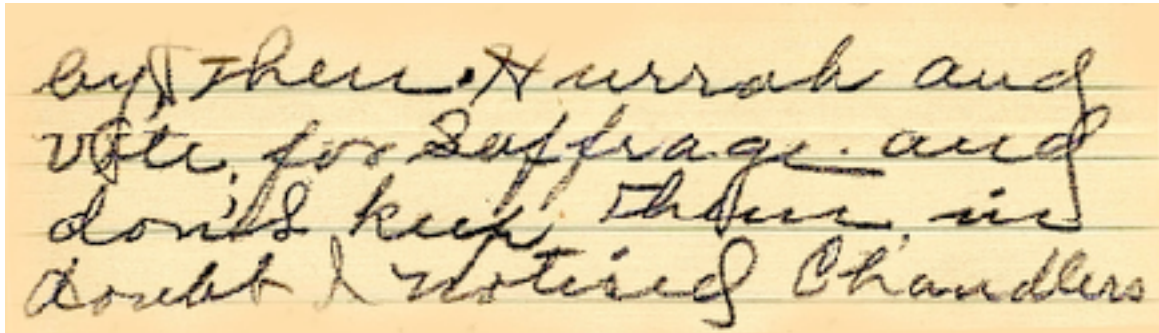 by then. Hurrah and
vote for Suffrage and
don't keep them in
doubt I noticed Chandlers